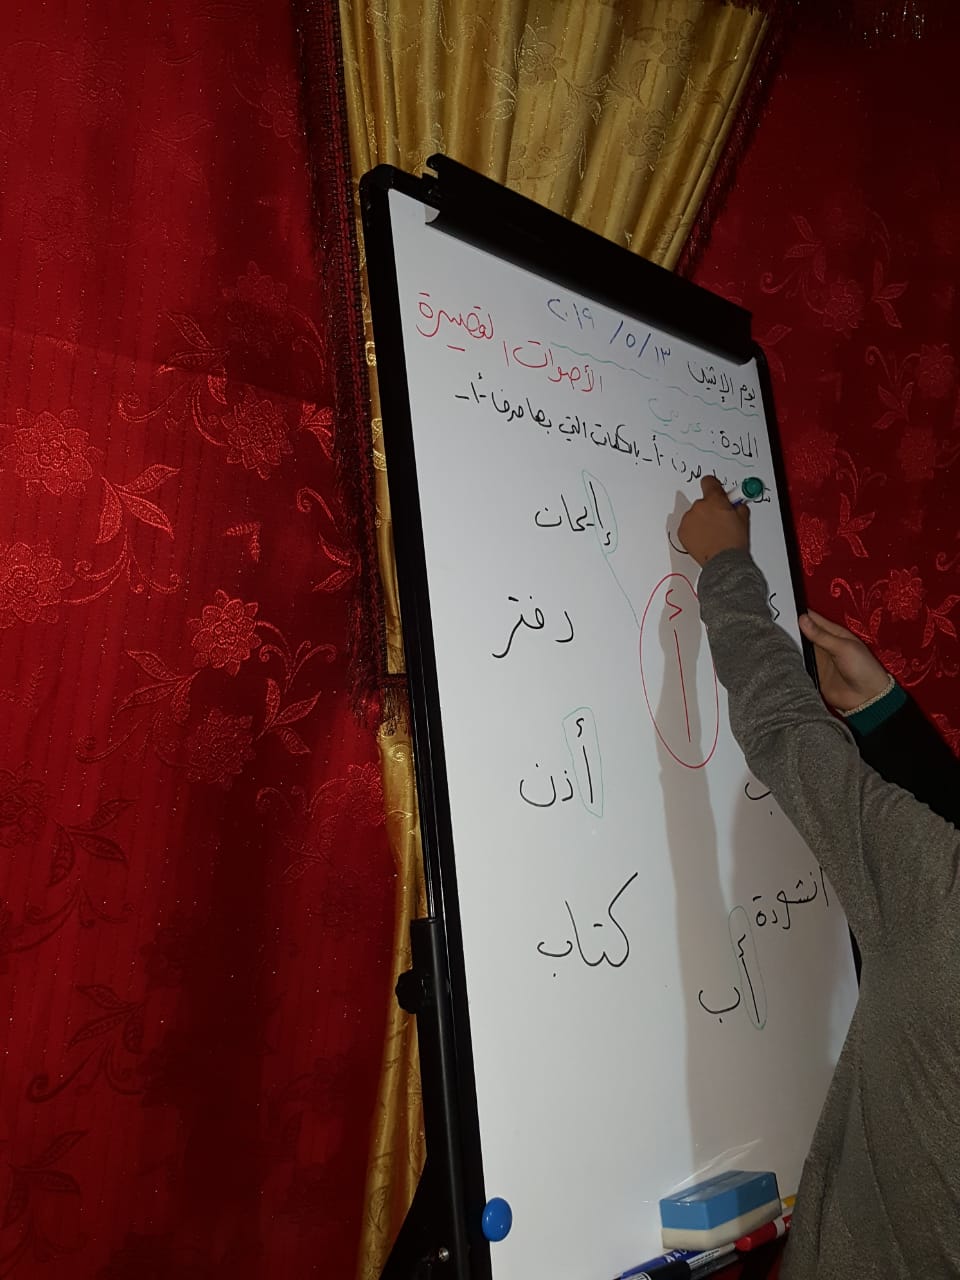 يوم الإثنين ١٣/ ٥/ ٢٠١٩
المادة: عربي
الأصوات القصيرة
حرف -أ- بالكلمات التي بها حرف -أ-
إيمان
دفتر
أ
أذن
انشودة
كتاب
أب